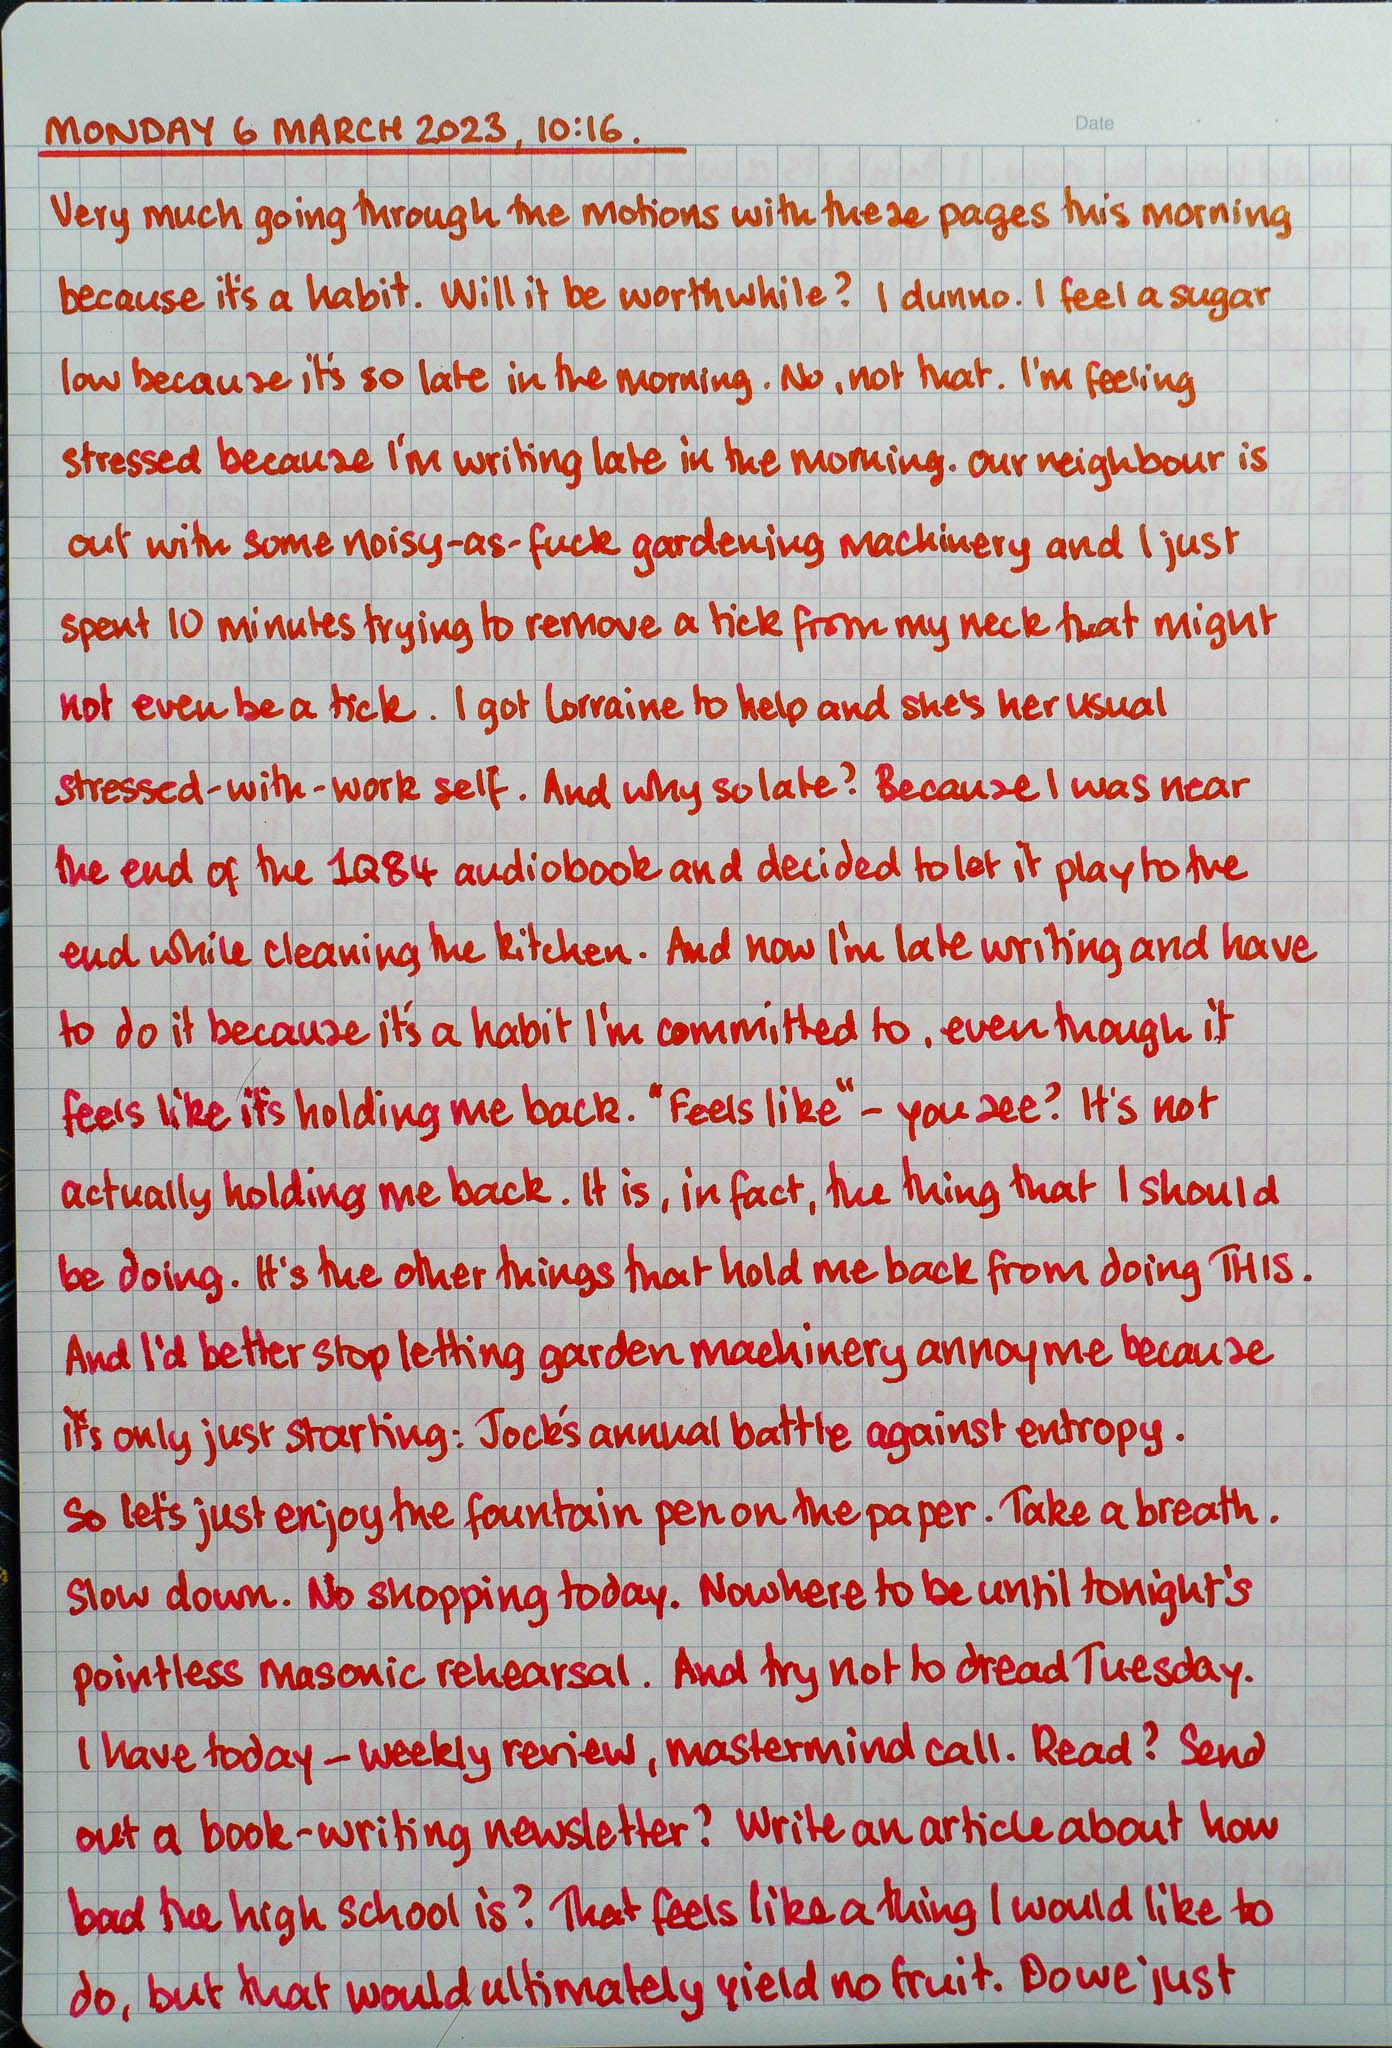 Date
MONDAY 6 MARCH 2023, 10:16.
Very much going through the motions with these pages this morning
because it's a habit. Will it be worthwhile? I dunno. I feel a sugar
low because it's so late in the morning. No, not that. I'm feeling
stressed because I'm writing late in the morning. Our neighbour is
out with some noisy-as-fuck gardening machinery and I just
spent 10 minutes trying to remove a tick from my neck that might
not even be a tick. I got Lorraine to help and she's her usual
stressed-with-work self. And why so late? Because I was near
the end of the 1Q84 audiobook and decided to let it play to the
end while cleaning the kitchen. And now I'm late writing and have
to do it because it's a habit I'm committed to, even though it
feels like it's holding me back. "Feels like" – you see? It's not
actually holding me back. It is, in fact, the thing that I should
be doing. It's the other things that hold me back from doing THIS.
And I'd better stop letting garden machinery annoy me because
it's only just starting: Jock's annual battle against entropy.
So let's just enjoy the fountain pen on the paper. Take a breath.
Slow down. No shopping today. Nowhere to be until tonight's
pointless masonic rehearsal. And try not to dread Tuesday.
I have today – weekly review, mastermind call. Read? Send
out a book-writing newsletter? Write an article about how
bad the high school is? That feels like a thing I would like to
do, but that would ultimately yield no fruit. Do we just